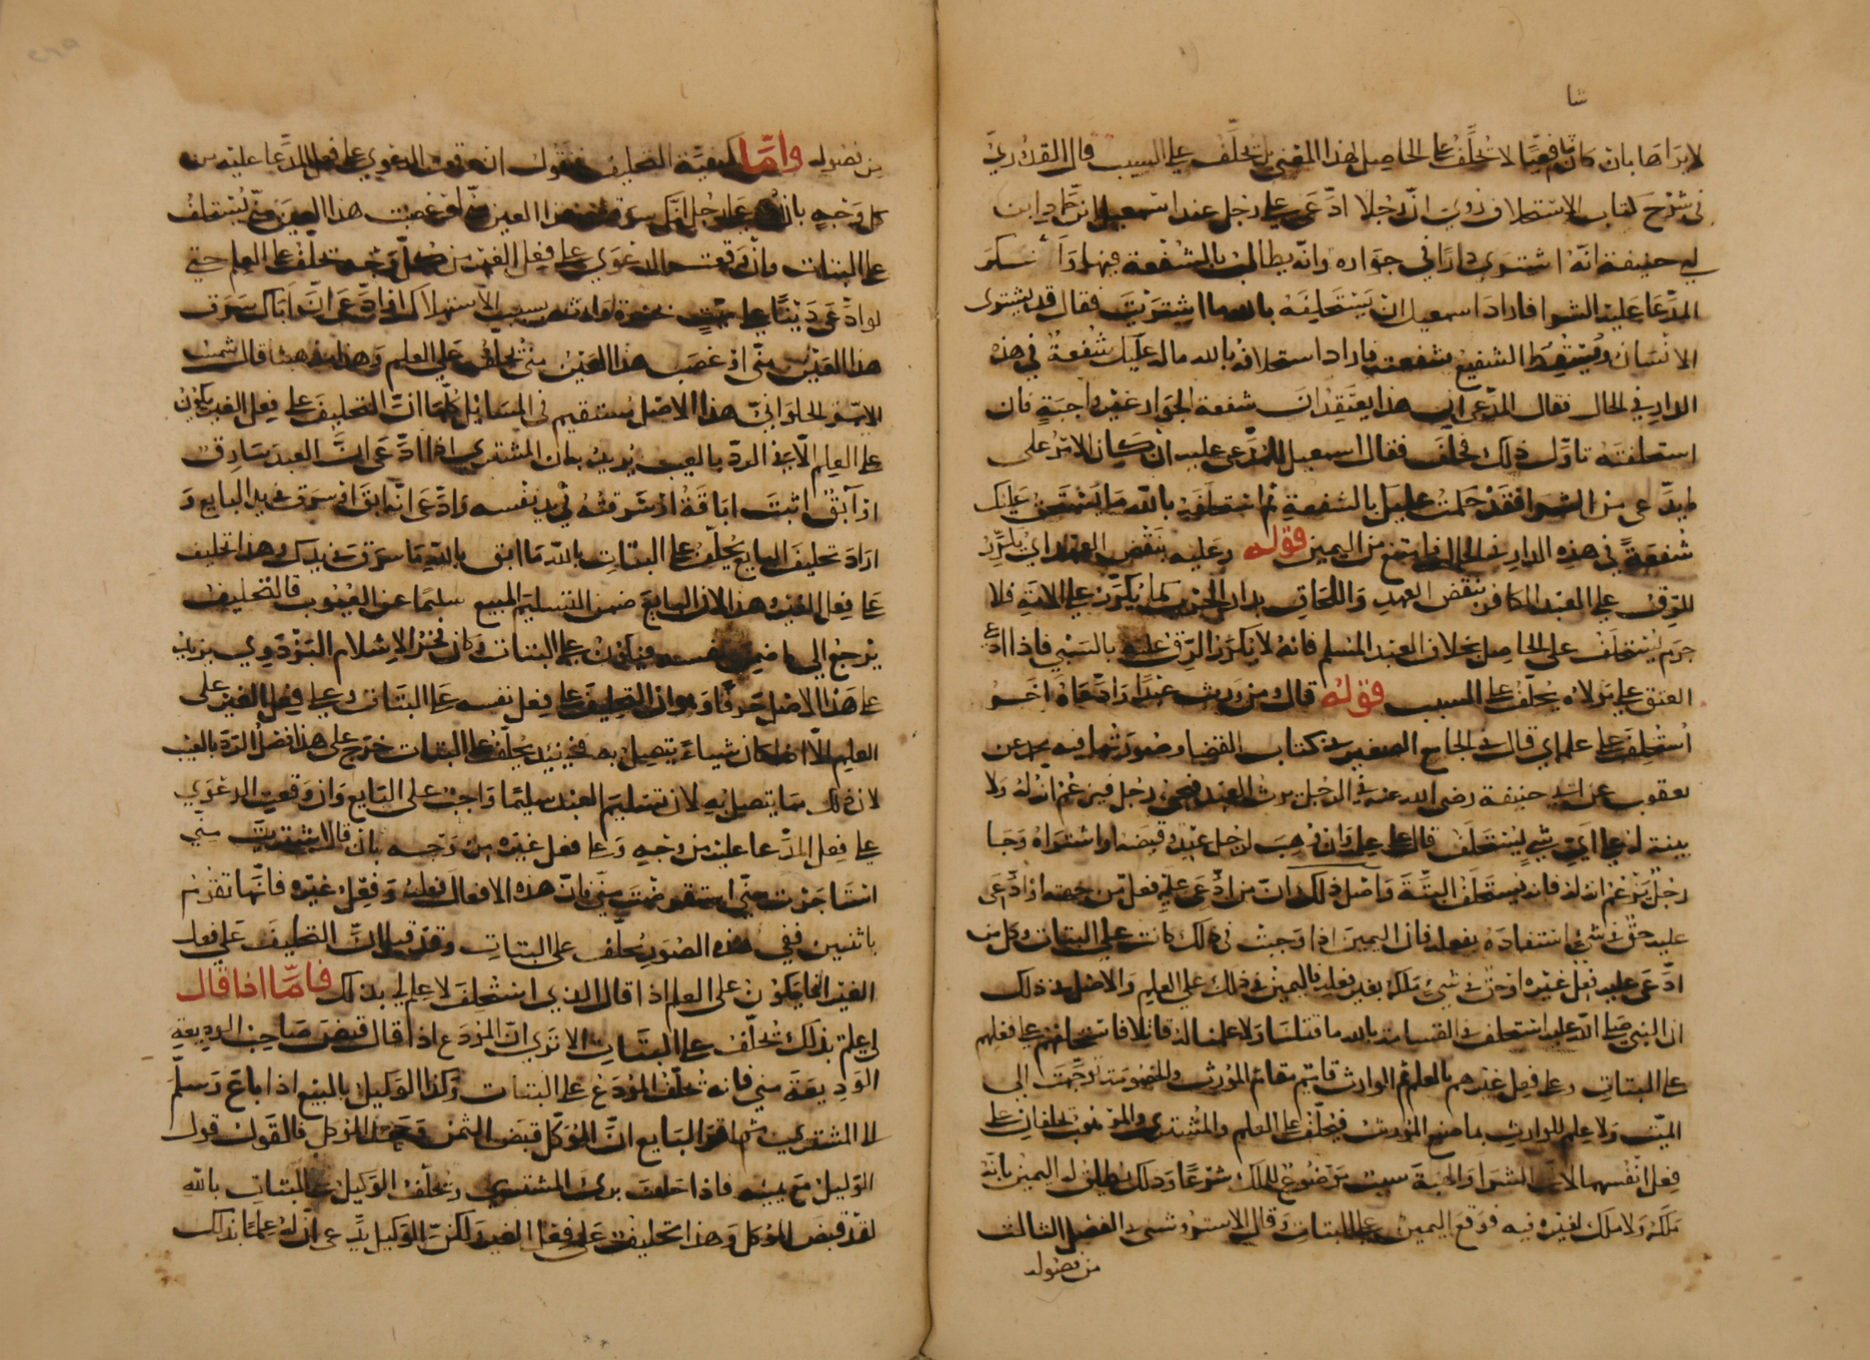 شا
لا يراها بان كان شافعيّا لا تحلّف على الحاصل لهذا المعنى بل تحلّف على السبب قال القدوريّ
في شرح كتاب الاستحلاف روي انّ رجلا ادّعى على رجل عند اسمعيل بن حماد ابن
ابي حنيفة انّه اشترى دارا في جواره وانّه يطالب بالشفعة فيها وانكر
المدّعا عليه الشرا فاراد اسمعيل ان يستحلفه بالله ما اشتريت فقال قد يشترى
الانسان ويسقط الشفيع شفعته فاراد استحلافه بالله ماله عليك شفعة في هذه
الدار في الحال فقال المدّعى ان هذا يعتقد ان شفعة الجوار غير واجبة فان
استحلفته تاوّل ذلك فحلف فقال اسمعيل للمدّعى عليه ان كان الامر على
ما يدّعى من الشرا فقد حكمت عليك بالشفعة ثم استحلف بالله ما يستحق عليك
شفعة في هذه الدار في الحال فامتنع من اليمين قوله وعليه بنقض العهد اي يكرّر
الرّق على العبد الكافر بنقض العهد واللحاق بدار الحرب كما يكرّر على الامة فلا
جرم يستحلف على الحاصل بخلاف العبد المسلم فانه لا يكرّر الرّق عليه بالسّبي فاذا ادّعى
العتق على مولاه يحلّف على السبب قوله قال ومن ورث عبدا وادّعاه اخر
استحلف على علمه اي قال في الجامع الصغير في كتاب القضا وصورتها فيه محمد عن
يعقوب عن ابي حنيفة رضي الله عنه في الرجل يرث العبد فيجي رجل فيزعم انه له ولا
بينة له على ايّ شي يستحلف قال على علمه وان وهب لرجل عبد وقبضه او اشتراه وجا
رجل يزعم انه له فانه يستحلف البتّة واصل ذلك انّ من ادّعى عليه فعل من جهته او ادّعى
عليه حقّ في شي استفاده بفعله فان اليمين اذا وجبت في ذلك كانت على البتات وكل من
ادّعى عليه فعل غيره او حق في شي ملكه بغير فعله فاليمين في ذلك على العلم والاصل في ذلك
ان النبي صلى الله عليه استحلف في القسامة بالله ما قتلنا ولا علمنا له قاتلا فاستحلفهم على فعلهم
على البتات وعلى فعل غيرهم بالعلم ثم الوارث قايم مقام المورث والخصومة توجّهت الى
الميّت ولا علم للوارث بما صنع المورث فيحلّف على العلم والمشترى والموهوب يحلفان على
فعل انفسهما لانّ الشرا والهبة سبب موضوع للملك شرعا وذلك يطلق له اليمين بانّه
ملكه ولا ملك لغيره فيه فوقع اليمين على البتات وقال الاستروشني في الفصل الثالث
من فصوله
من فصوله وامّا كيفيّة التحليف فنقول ان وقعت الدعوي على فعل المدّعا عليه من
كل وجه بان ادعى على رجل انّك سرقت هذا العين منّي او غصبت هذا العين منّي يستحلف
على البتات وان وقعت الدعوي على فعل الغير من كل وجه تحلف على العلم حتي
لو ادّعى دينا على ميّت بحضرة وارثه بسبب الاستهلاك او ادّعى انّ اباك سرق
هذا العين منّي او غصب هذا العين منّي يحلف على العلم وهذا مذهبنا قال شمس
الايمّة الحلوانيّ هذا الاصل مستقيم في المسائل كلّها انّ التحليف على فعل الغير يكون
على العلم الّا في الردّ بالعيب يريد به ان المشترى اذا ادّعى انّ العبد سارق
او آبق اثبت اباقه او سرقته في يد نفسه وادّعى انّه ابق او سرق في يد البايع و
اراد تحليف البايع يحلّف على البتات بالله ما ابق بالله ما سرق في يدك وهذا تحليف
على فعل الغير وهذا لانّ البايع ضمن التسليم المبيع سليما عن العيوب فالتحليف
يرجع الى ما ضمن بنفسه فيكون على البتات وكان فخر الاسلام البزدوي يزيد
على هذا الاصل حرفا وهو ان التحليف على فعل نفسه على البتات وعلى فعل الغير على
العلم الّا اذا كان شياء يتصل به فحينيذ يحلّف على البتات خرج على هذا فصل الردّ بالعيب
لان ذلك مما يتصل به لان تسليم العبد سليما واجب على البايع وان وقعت الدعوي
على فعل المدّعا عليه من وجه وعلى فعل غيره من وجه بان قال اشتريت منّي
استاجرت منّي استقرضت منّي فانّ هذه الافعال فعله وفعل غيره فانّها تقوم
باثنين ففي هذه الصور يحلّف على البتات وقد قيل انّ التحليف على فعل
الغير انما يكون على العلم اذا قال الذي استحلف لا علم لي بذلك فامّا اذا قال
لي علم بذلك تحلّف على البتات الا تري انّ المودع اذا قال قبض صاحب الوديعة
الوديعة مني فانه تحلّف المودع على البتات وكذا الوكيل بالبيع اذا باع وسلّم
الى المشتري ثم اقرّ البايع انّ الموكّل قبض الثمن وجحد الموكل فالقول قول
الوكيل مع يمينه فاذا حلف برئ المشترى ويحلّف الوكيل على البتات بالله
لقد قبض الموكل وهذا تحليف على فعل الغير ولكنّ الوكيل يدّعى انّ له علما بذلك